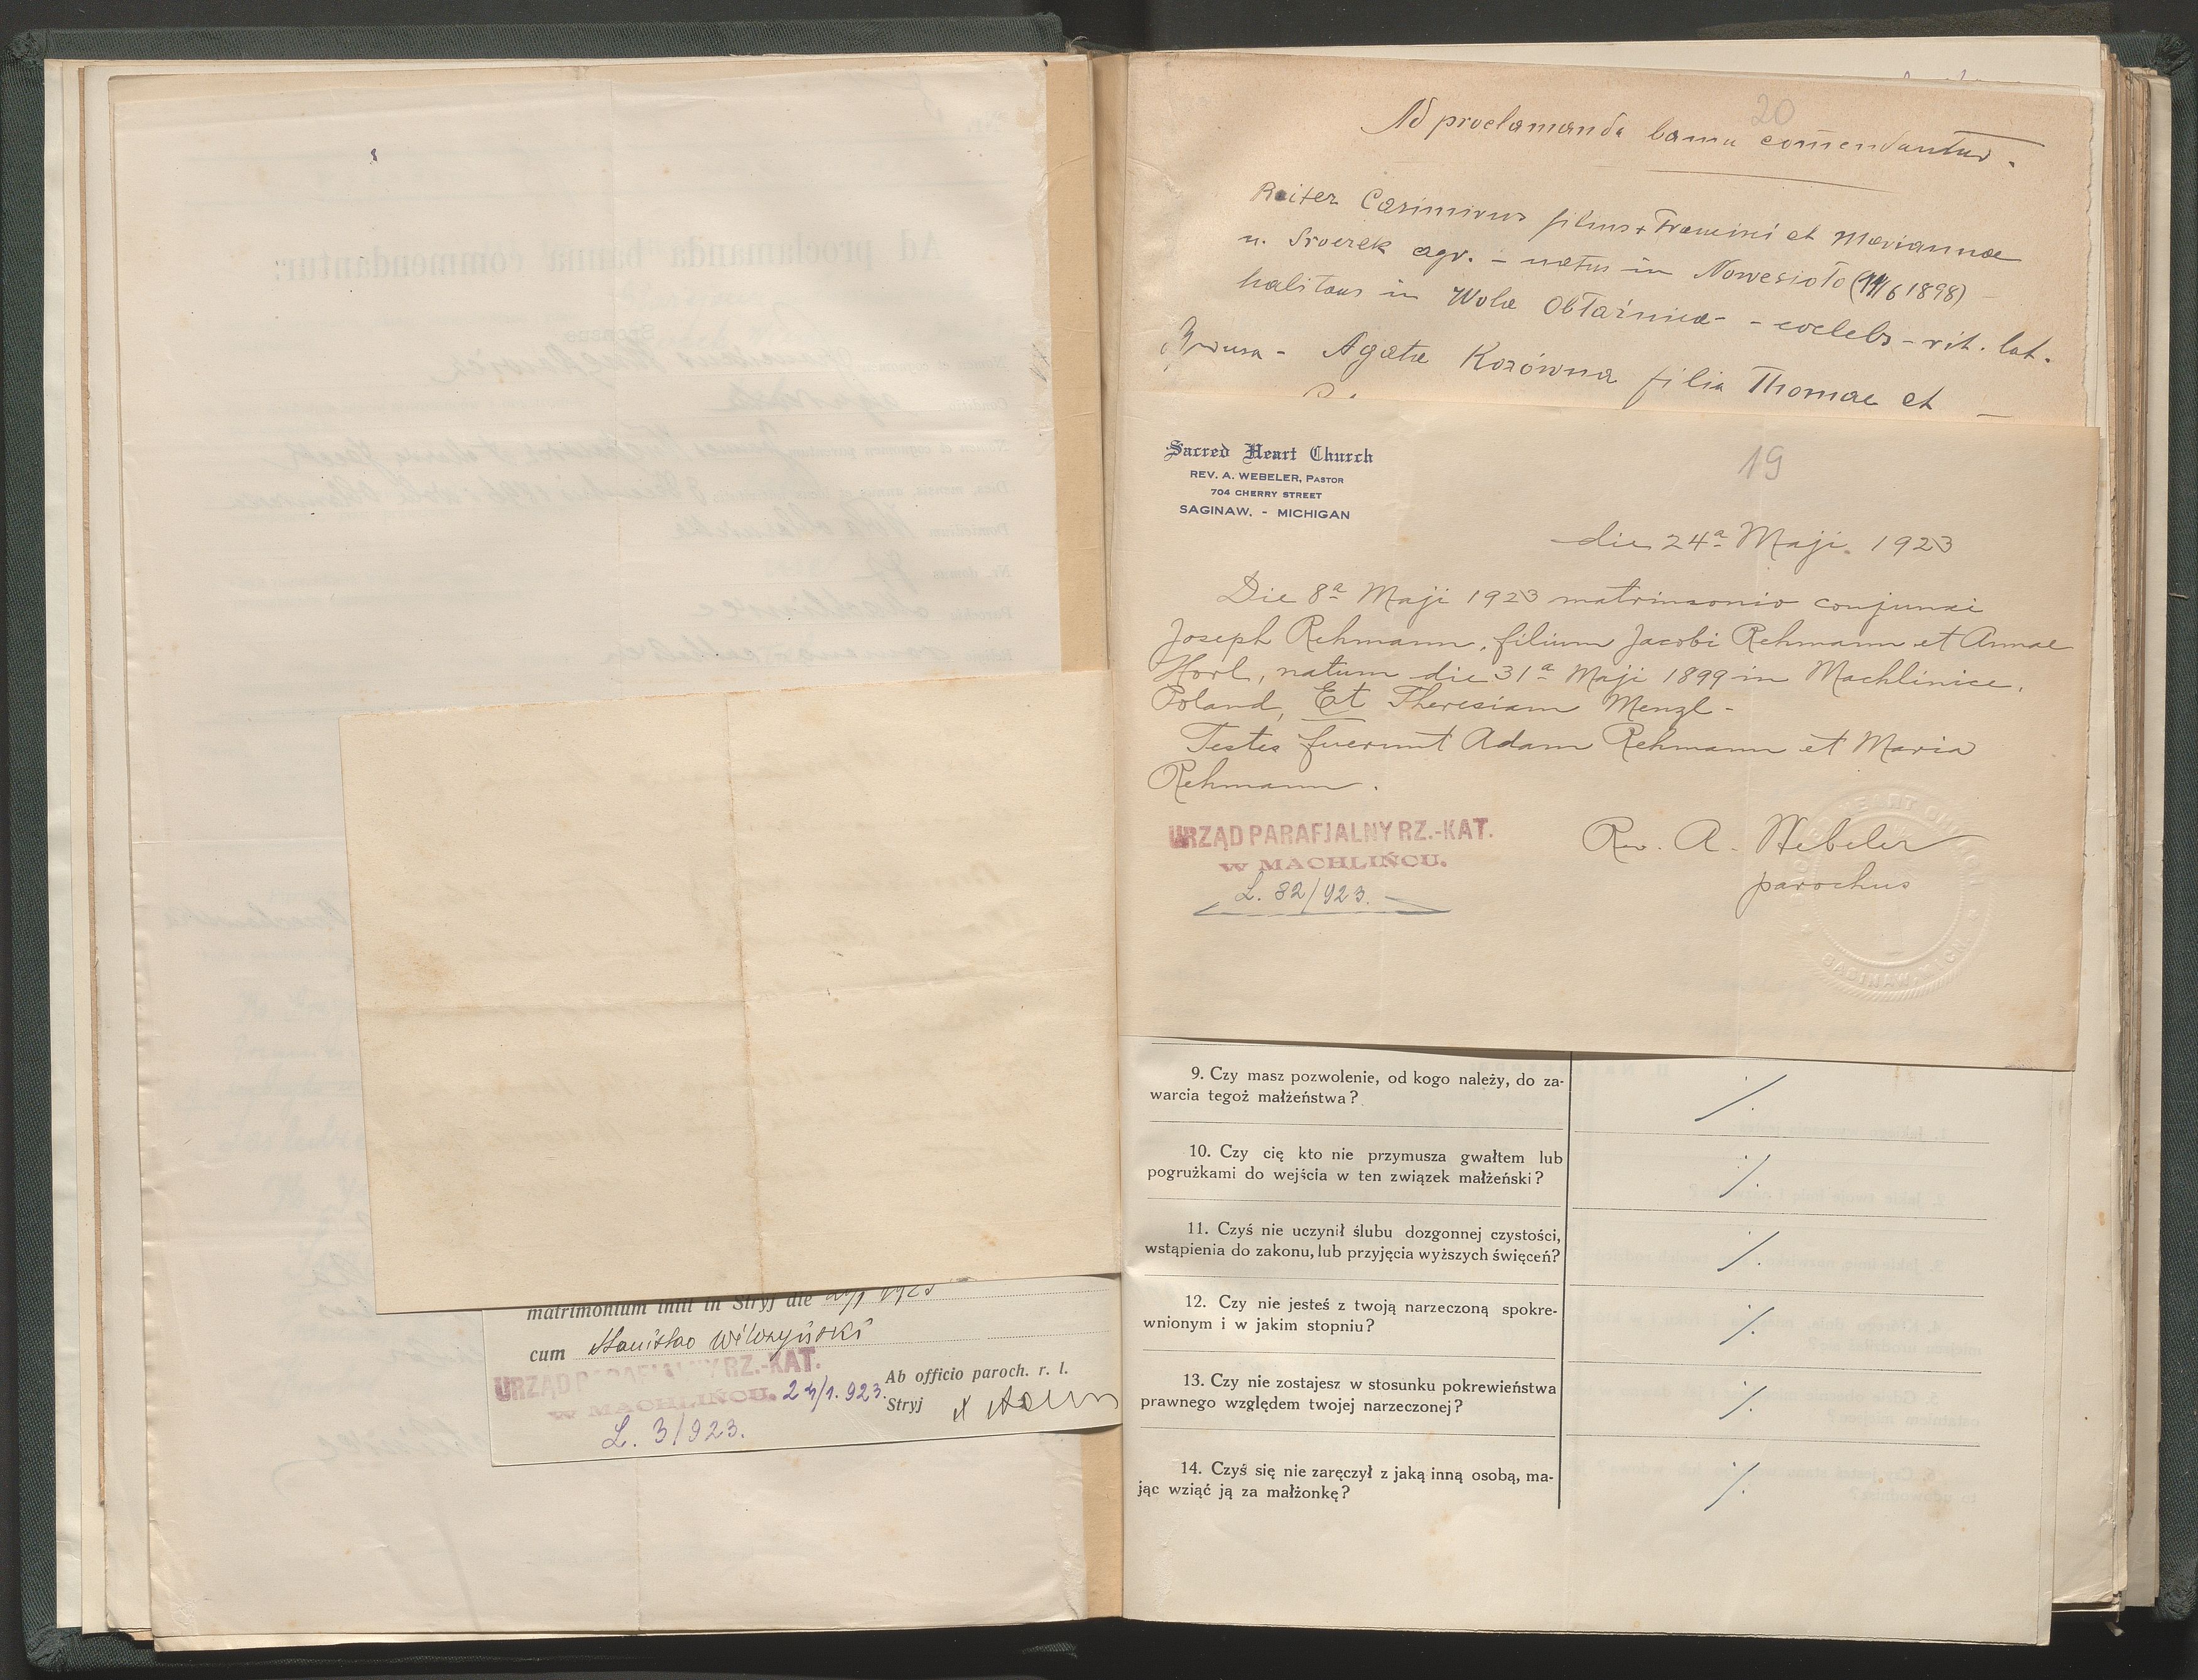 matrimonium iniit in Stryj die
cum Stanislao Wilczyński
URZĄD PARAFJALNY RZ.-KAT.
W MACHLIŃCU. 23/1. 923.
L. 3/923.
Ab officio paroch. r. l.
Stryj
20
Ad proclamanda banna comendantur.
Reiter Casimirus filius + Francisci et Mariannae
n. Sroczek agr. - natus in Nowesioło (14/6 1898) -
habitans in Wola Obłaźnica - - coelebs - rit. lat.
Sponsa - Agata Kozówna filia Thomae et -
19
Sacred Heart Church
REV. A. WEBELER, PASTOR
704 CHERRY STREET
SAGINAW, - MICHIGAN
die 24ª Maji. 1923
Die 8ª Maji 1923 matrimonio conjunxi
Joseph Rehmann, filium Jacobi Rehmann et Annae
Horl, natum die 31ª Maji 1899 in Machlinice,
Poland, Et Theresiam Menzl -
Testes fuerunt Adam Rehmann et Maria
Rehmann.
URZĄD PARAFJALNY RZ.-KAT.
W MACHLIŃCU.
L. 32/923.
Rev. A. Webeler
parochus
9. Czy masz pozwolenie, od kogo należy, do za-
warcia tegoż małżeństwa?
10. Czy cię kto nie przymusza gwałtem lub
pogrużkami do wejścia w ten związek małżeński?
11. Czyś nie uczynił ślubu dozgonnej czystości,
wstąpienia do zakonu, lub przyjęcia wyższych święceń?
12. Czy nie jesteś z twoją narzeczoną spokre-
wnionym i w jakim stopniu?
13. Czy nie zostajesz w stosunku pokrewieństwa
prawnego względem twojej narzeczonej?
14. Czyś się nie zaręczył z jaką inną osobą, ma-
jąc wziąć ją za małżonkę?